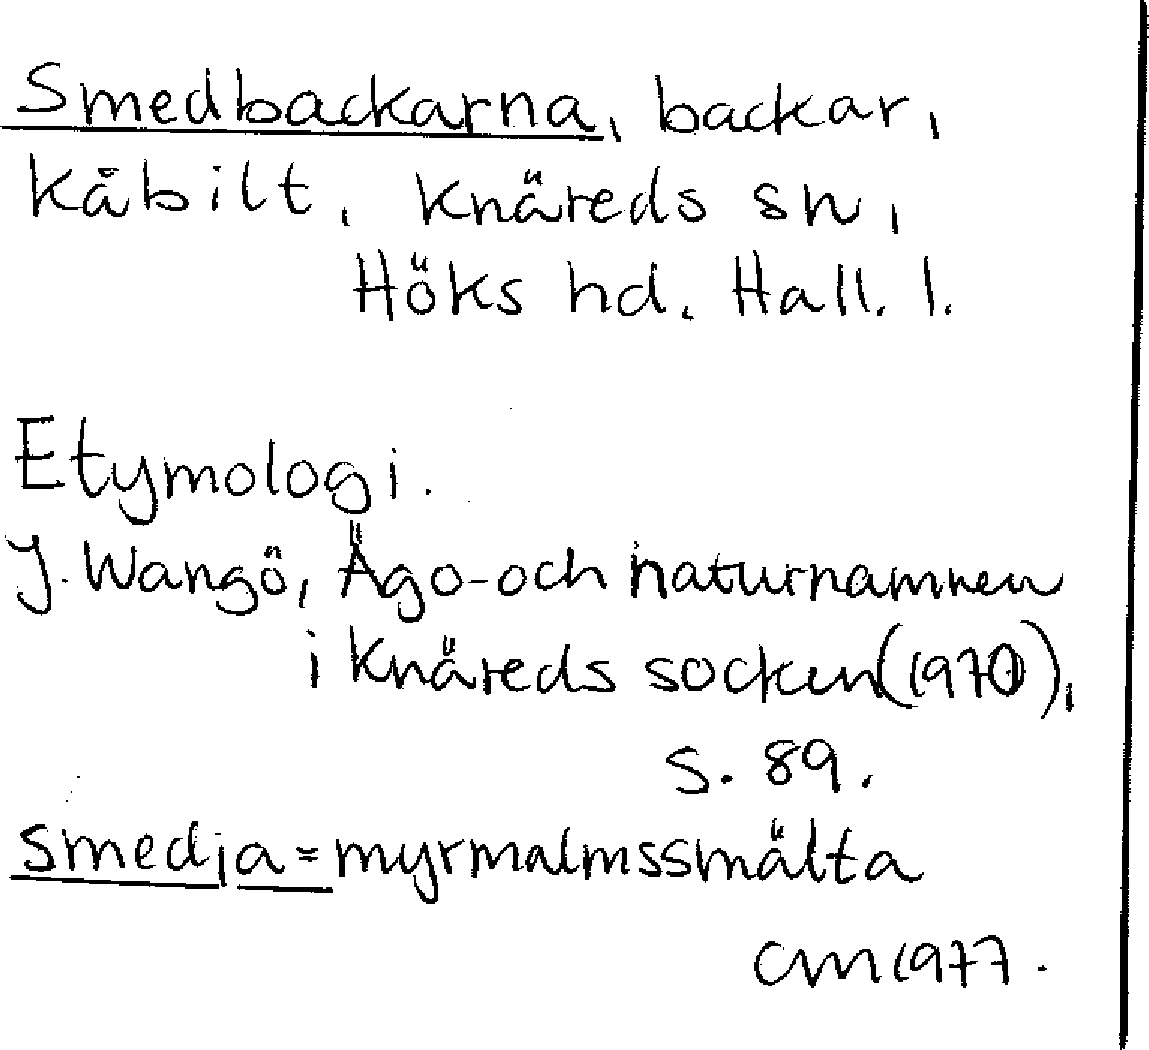 Smedbackarna, backar,
Kåbilt, Knäreds sn,
Höks hd, Hall. l.
Etymologi.
J. Wangö, Ägo- och naturnamnen
i Knäreds socken (1970),
s. 89.
smedja = myrmalmssmälta
CM 1977.